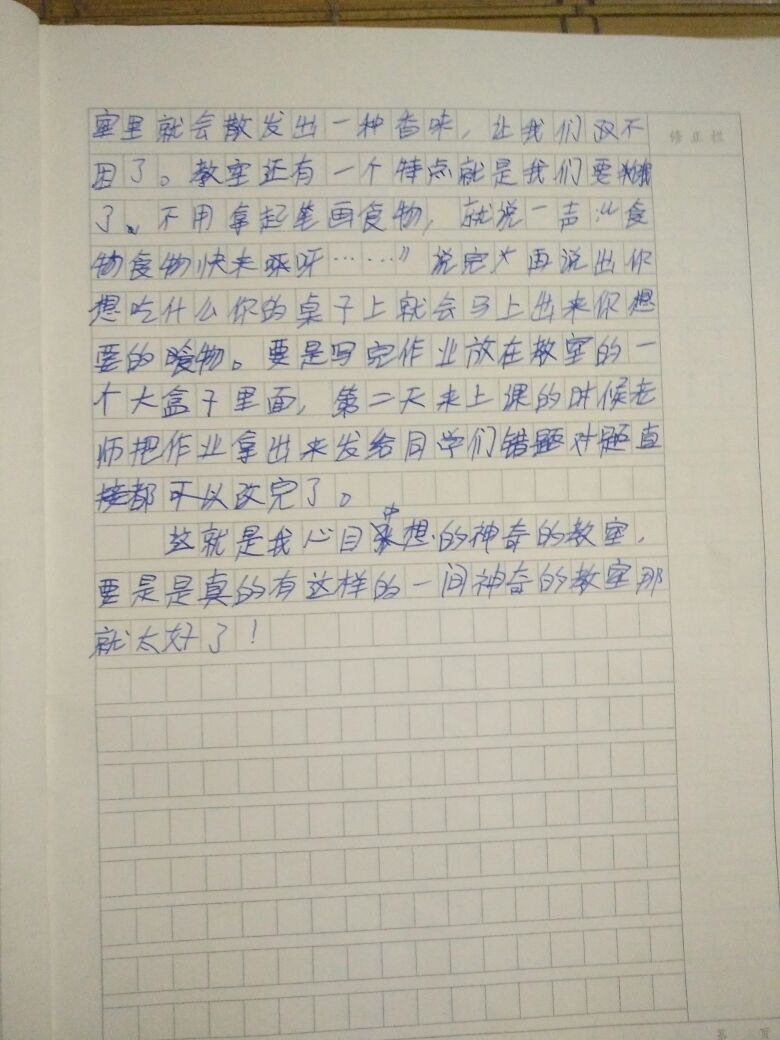 室里就会散发出一种香味，让我们又不
修正栏
困了。教室还有一个特点就是我们要
了、不用拿起笔画食物，就说一声“食
物食物快来呀……”说完再说出你
想吃什么你的桌子上就会马上出来你想
要的食物。要是写完作业放在教室的一
个大盒子里面，第二天来上课的时候老
师把作业拿出来发给同学们错题对题直
接都可以改完了。
这就是我心目中想的神奇的教室，
要是是真的有这样的一间神奇的教室那
就太好了！
第 页